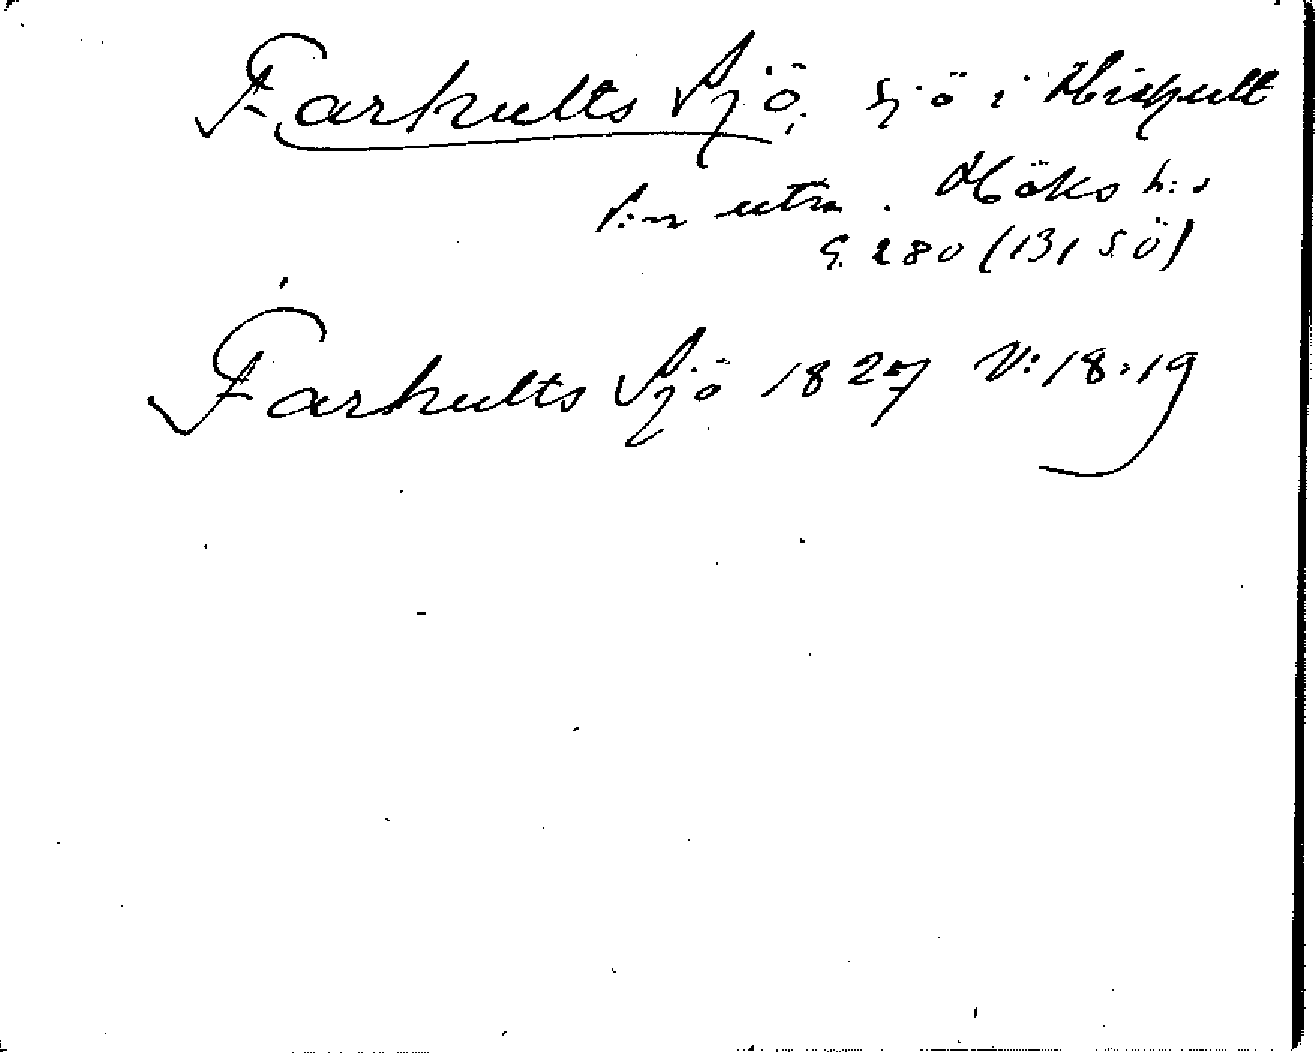 Farhults Sjö, sjö i Hishult
s:n utm. Höks h:d
G. 280 (131 SÖ)
Farhults Sjö 1827 V:18:19